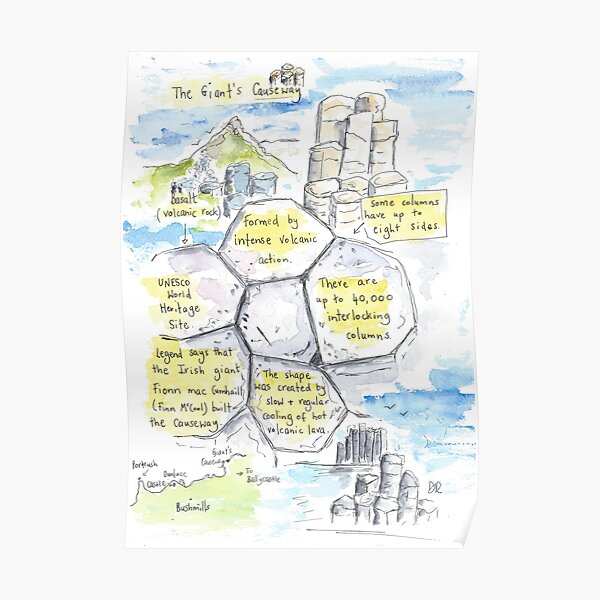 The Giant's Causeway
basalt
(volcanic rock)
formed by
intense volcanic
action.
Some columns
have up to
eight sides.
UNESCO
World
Heritage
Site.
There are
up to 40,000
interlocking
columns.
Legend says that
the Irish giant
Fionn mac Cumhaill
(Finn McCool) built
the Causeway.
The shape
was created by
slow + regular
cooling of hot
volcanic lava.
Portrush
Dunluce
Castle
Giant's
Causeway
→ To
Ballycastle
Bushmills